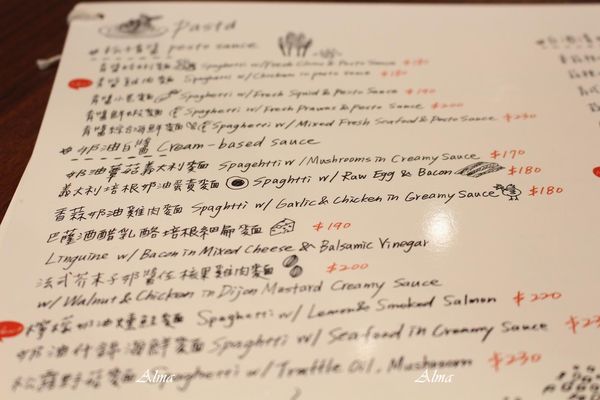 Pasta
pesto sauce
青醬蛤蜊麵 Spaghetti w/Fresh Clams & Pesto Sauce $180
青醬雞肉麵 Spaghetti w/Chicken in pesto sauce $180
青醬小卷麵 Spaghetti w/Fresh Squid & Pesto Sauce $190
青醬鮮蝦麵 Spaghetti w/Fresh Prawns & Pesto Sauce $200
青醬綜合海鮮麵 Spaghetti w/Mixed Fresh Seafood & Pesto Sauce $230
奶油白醬 Cream-based sauce
奶油蘑菇義大利麵 Spagehtti w/Mushrooms in Creamy Sauce $170
義大利培根奶油蛋黃麵 Spaghtti w/ Raw Egg & Bacon $180
香蒜奶油雞肉麵 Spaghtti w/ Garlic & Chicken in Greamy Sauce $180
巴薩酒醋乳酪培根細扁麵 $190
Linguine w/ Bacon in Mixed Cheese & Balsamic Vinegar
法式芥末子奶醬佐核果雞肉麵 $200
w/ Walnut & Chicken in Dijon Mustard Creamy Sauce
檸檬奶油燻鮭麵 Spaghetti w/ Lemon & Smoked Salmon $220
奶油什錦海鮮麵 Spaghetti w/ Seafood in Creamy Sauce
松露野菇麵 Spaghetti w/ Truffle Oil, Mushroom $230
Alma Alma